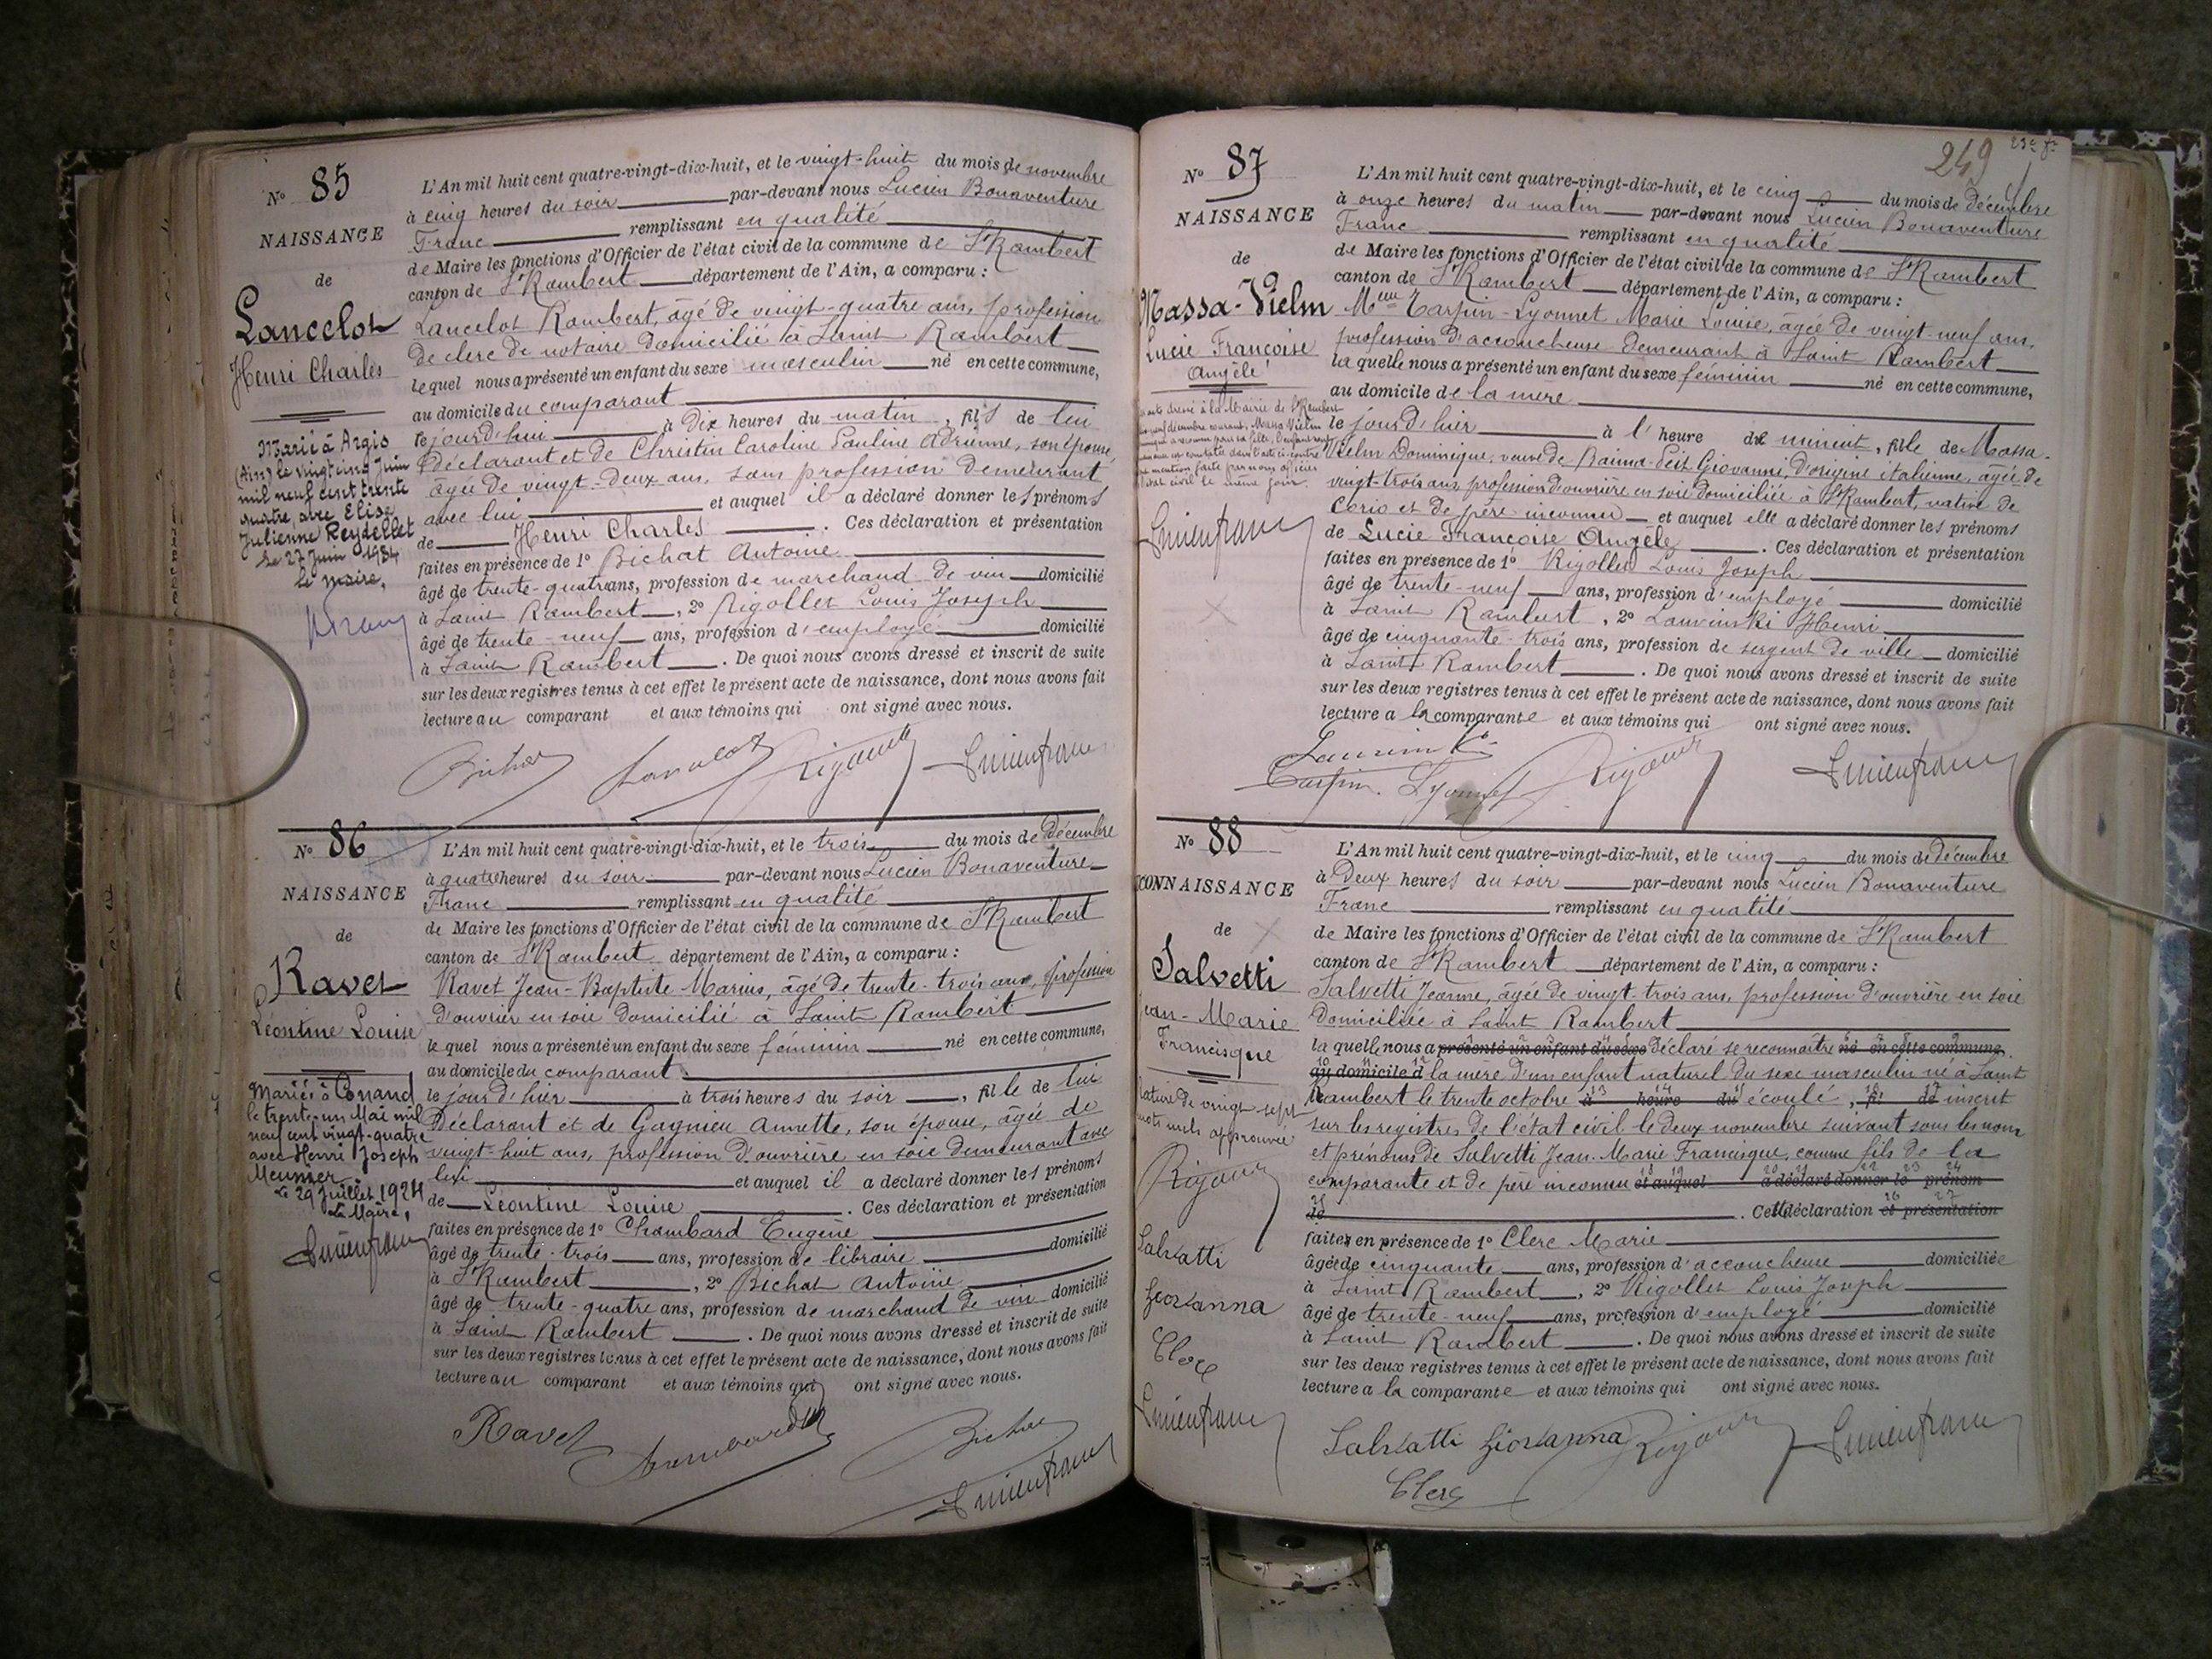 N° 85
NAISSANCE
de
Lancelot
Henri Charles
Marié à Argis
(Ain) le vingt cinq Juin
mil neuf cent trente
quatre, avec Elise
Julienne Reydellet
le 27 Juin 1934
le Maire,
L'An mil huit cent quatre-vingt-dix-huit, et le vingt-huit du mois de novembre
à cinq heures du soir par-devant nous Lucien Bonaventure
Franc remplissant en qualité
de Maire les fonctions d'Officier de l'état civil de la commune de St Rambert
canton de St Rambert département de l'Ain, a comparu :
Lancelot Rambert, âgé de vingt-quatre ans, profession
de clerc de notaire domicilié à Saint Rambert
lequel nous a présenté un enfant du sexe masculin né en cette commune,
au domicile du comparant
le jourd'hui à dix heures du matin, fils de lui
déclarant et de Christin Caroline Pauline Adrienne, son épouse,
âgée de vingt-deux ans, sans profession demeurant
avec lui et auquel il a déclaré donner les prénoms
de Henri Charles . Ces déclaration et présentation
faites en présence de 1° Bichat Antoine
âgé de trente-quatre ans, profession de marchand de vin domicilié
à Saint Rambert, 2° Rigollet Louis Joseph
âgé de trente-neuf ans, profession d'employé domicilié
à Saint Rambert . De quoi nous avons dressé et inscrit de suite
sur les deux registres tenus à cet effet le présent acte de naissance, dont nous avons fait
lecture au comparant et aux témoins qui ont signé avec nous.
N° 86
NAISSANCE
de
Ravet
Léontine Louise
Mariée à Conand
le trente-un Mai mil
neuf cent vingt-quatre
avec Henri Joseph
Meunier
Le 29 Juillet 1924
Le Maire,
Lucienfranc
L'An mil huit cent quatre-vingt-dix-huit, et le trois du mois de décembre
à quatre heures du soir par-devant nous Lucien Bonaventure
Franc remplissant en qualité
de Maire les fonctions d'Officier de l'état civil de la commune de St Rambert
canton de St Rambert département de l'Ain, a comparu :
Ravet Jean-Baptiste Marius, âgé de trente-trois ans, profession
d'ouvrier en soie domicilié à Saint Rambert
lequel nous a présenté un enfant du sexe féminin né en cette commune,
au domicile du comparant
le jour d'hier à trois heures du soir, fille de lui
Déclarant et de Gagnieu Annette, son épouse, âgée de
vingt-huit ans, profession d'ouvrière en soie demeurant avec
lui et auquel il a déclaré donner les prénoms
de Léontine Louise . Ces déclaration et présentation
faites en présence de 1° Chambard Eugène
âgé de trente-trois ans, profession de libraire domicilié
à St Rambert, 2° Bichat Antoine
âgé de trente-quatre ans, profession de marchand de vin domicilié
à Saint Rambert . De quoi nous avons dressé et inscrit de suite
sur les deux registres tenus à cet effet le présent acte de naissance, dont nous avons fait
lecture au comparant et aux témoins qui ont signé avec nous.
Ravet
Lucienfranc
249
N° 87
NAISSANCE
de
Massa-Vielm
Lucie Françoise
Angèle
Lucienfranc
L'An mil huit cent quatre-vingt-dix-huit, et le cinq du mois de décembre
à onze heures du matin par-devant nous Lucien Bonaventure
Franc remplissant en qualité
de Maire les fonctions d'Officier de l'état civil de la commune de St Rambert
canton de St Rambert département de l'Ain, a comparu :
Mme Tarpin-Lyonnet Marie Louise, âgée de vingt-neuf ans,
profession d'accoucheuse demeurant à Saint Rambert
laquelle nous a présenté un enfant du sexe féminin né en cette commune,
au domicile de la mère
le jour d'hier à l'heure de minuit, fille de Massa-
Vielm Dominique, veuve de Giovanni, d'origine italienne, âgée de
vingt-trois ans, profession d'ouvrière en soie domiciliée à St Rambert, native de
Corio et de père inconnu et auquel elle a déclaré donner les prénoms
de Lucie Françoise Angèle . Ces déclaration et présentation
faites en présence de 1° Rigollet Louis Joseph
âgé de trente-neuf ans, profession d'employé domicilié
à Saint Rambert, 2° Lauvinski Henri
âgé de cinquante-trois ans, profession de sergent de ville domicilié
à Saint Rambert . De quoi nous avons dressé et inscrit de suite
sur les deux registres tenus à cet effet le présent acte de naissance, dont nous avons fait
lecture a la comparante et aux témoins qui ont signé avec nous.
Tarpin-Lyonnet
Lucienfranc
N° 88
CONNAISSANCE
de
Salvetti
Jean-Marie
Francisque
Rature de vingt-sept
mots nuls approuvée
Salvatti
Giovanna
Clerc
Lucienfranc
L'An mil huit cent quatre-vingt-dix-huit, et le cinq du mois de décembre
à Deux heures du soir par-devant nous Lucien Bonaventure
Franc remplissant en qualité
de Maire les fonctions d'Officier de l'état civil de la commune de St Rambert
canton de St Rambert département de l'Ain, a comparu :
Salvetti Jeanne, âgée de vingt-trois ans, profession d'ouvrière en soie
domiciliée à Saint Rambert
laquelle nous a présenté un enfant du sexe déclaré se reconnaître né en cette commune,
au domicile d la mère d'un enfant naturel du sexe masculin né à Saint
Rambert le trente octobre à heure du écoulé, fi de inscrit
sur les registres de l'état civil le deux novembre suivant sous les nom
et prénoms de Salvetti Jean-Marie Francisque, comme fils de la
comparante et de père inconnu et auquel a déclaré donner le prénom
de . Cette déclaration et présentation
faites en présence de 1° Clerc Marie
âgée de cinquante ans, profession d'accoucheuse domiciliée
à Saint Rambert, 2° Rigollet Louis Joseph
âgé de trente-neuf ans, profession d'employé domicilié
à Saint Rambert . De quoi nous avons dressé et inscrit de suite
sur les deux registres tenus à cet effet le présent acte de naissance, dont nous avons fait
lecture a la comparante et aux témoins qui ont signé avec nous.
Salvatti Giovanna
Lucienfranc
Clerc